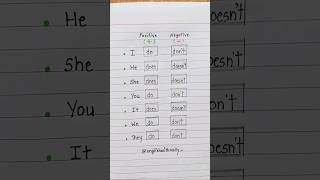 Positive Negative
(+) (-)
I do don't
He does doesn't
She does doesn't
You do don't
It does doesn't
We do don't
They do don't
He
She
You
It
doesn't
n't
oesn't